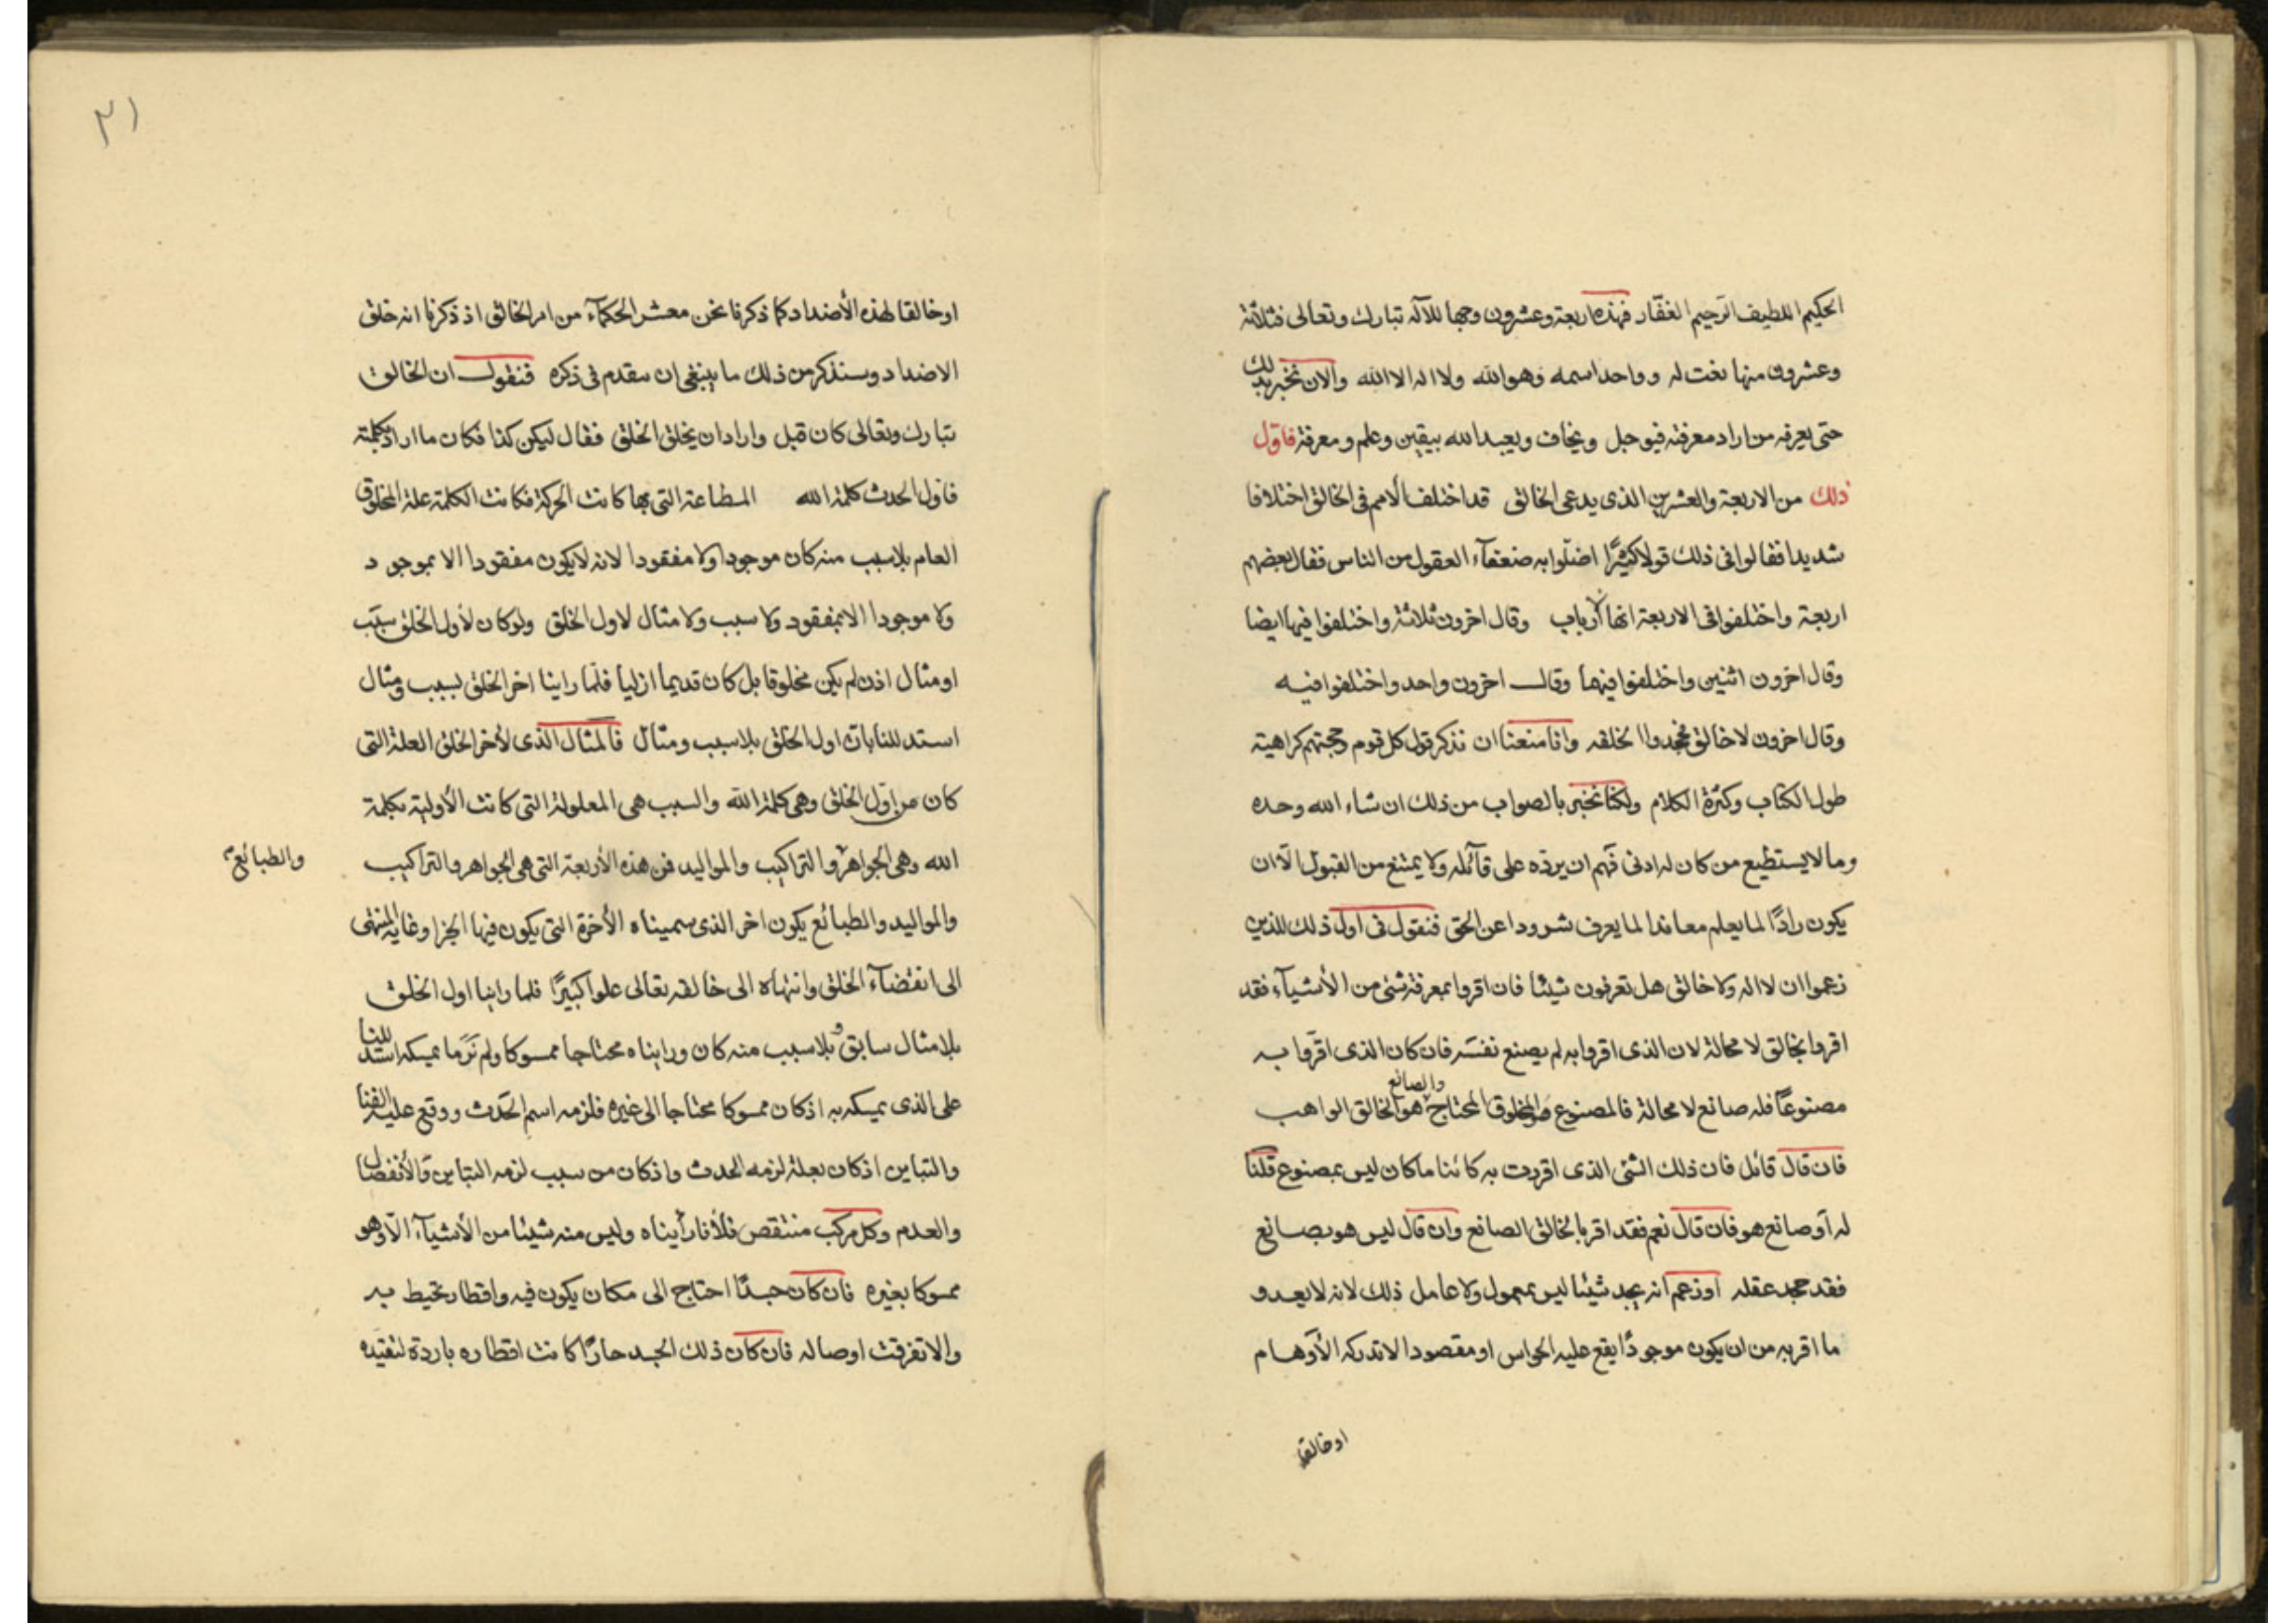 الحكيم اللطيف الرّحيم الغفّار فهذه اربعة وعشرون وجها للآله تبارك وتعالى فثلاثة
وعشرون منها نعت له وواحد اسمه وهو الله ولا اله الا الله والان نخبر بذلك
حتى يعرفه من اراد معرفته فيوجل ويخاف ويعبد الله بيقين وعلم ومعرفة فاوّل
ذلك من الاربعة والعشرين الذى يدعى الخالق قد اختلف الامم فى الخالق اختلافا
شديدا فقالوا فى ذلك قولا كثيرًا اضلّوا به ضعفآء العقول من الناس فقال بعضهم
اربعة واختلفوا فى الاربعة انها ارباب وقال اخرون ثلاثة واختلفوا فيها ايضا
وقال اخرون اثنين واختلفوا فيهما وقال اخرون واحد واختلفوا فيه
وقال اخرون لا خالق فجحدوا الخلقه وانا منعنا ان نذكر قول كل قوم وحجتهم كراهية
طول الكتاب وكثرة الكلام ولكنا نخبر بالصواب من ذلك ان شاء الله وحده
وما لا يستطيع من كان له ادنى فهم ان يردّه على قآئله ولا يمتنع من القبول الّا ان
يكون رادًّا لما يعلم معاندا لما يعرف شرودا عن الحق فنقول فى اول ذلك للذين
زعموا ان لا اله ولا خالق هل تعرفون شيئا فان اقروا بمعرفة شئ من الأشيآء فقد
اقروا بخالق لا محالة لان الذى اقروا به لم يصنع نفسه فان كان الذى اقرّوا به
مصنوعًا فله صانع لا محالة فالمصنوع هو المخلوق المحتاج والصانع هو الخالق الواهب
فان قال قائل فان ذلك الشئ الذى اقررت به كائنا ما كان ليس بمصنوع قلنا
له أو صانع هو فان قال نعم فقد اقر بالخالق الصانع وان قال ليس هو بصانع
فقد جحد عقله او زعم انه يجد شيئا ليس بمعمول ولا عامل ذلك لانه لا يعدو
ما اقر به من ان يكون موجودًا يقع عليه الحواس او مقصودا لا تدركه الأوهام
اوخالقا
٢١
اوخالقا لهذه الأضداد كما ذكرنا نحن معشر الحكمآء من امر الخالق اذ ذكرنا انه خلق
الاضداد وسنذكر من ذلك ما ينبغى ان نقدم فى ذكره فنقول ان الخالق
تبارك وتعالى كان قبل واراد ان يخلق الخلق فقال ليكن كذا فكان ما اراد بكلمته
فاول الحدث كلمة الله المطاعة التى بها كانت الحركة فكانت الكلمة علة المخلوق
العام بلا سبب منه كان موجودا ولا مفقودا لانه لا يكون مفقودا الا بموجود
ولا موجودا الا بمفقود ولا سبب ولا مثال لاول الخلق ولو كان لأول الخلق سبب
او مثال اذن لم يكن مخلوقا بل كان قديما ازليا فلمّا راينا اخر الخلق بسبب ومثال
استدللنا بان اول الخلق بلا سبب ومثال فالمثال الذى لأخر الخلق العلة التى
كان من اوّل الخلق وهى كلمة الله والسبب هى المعلولة التى كانت الأولية بكلمة
الله وهى الجواهر والتراكيب والمواليد فمن هذه الأربعة التى هى الجواهر والتراكيب
والطبائع
والمواليد والطبائع يكون اخر الذى سميناه الأخرة التى يكون فيها الجزا وغاية المنتهى
الى انقضآء الخلق وانتهاه الى خالقه تعالى علوا كبيرًا فلما راينا اول الخلق
بلا مثال سابق وبلا سبب منه كان وراٮناه محتاجا ممسوكا ولم نَرَ ما يمسكه استدللنا
على الذى يمسكه به اذ كان ممسوكا محتاجا الى غيره فلزمه اسم الحَدَث ووقع عليه الفنا
والتباين اذ كان بعلة لزمه الحدث واذ كان من سبب لزمه التباين والأنفصال
والعدم وكل مركب منتقص فلأنا رأيناه وليس منه شيئا من الأشيآء الّا وهو
ممسوكا بغيره فان كان جسدًا احتاج الى مكان يكون فيه واقطار تحيط به
والا تفرقت اوصاله فان كان ذلك الجسد حارًا كانت اقطاره باردة لتقيّده